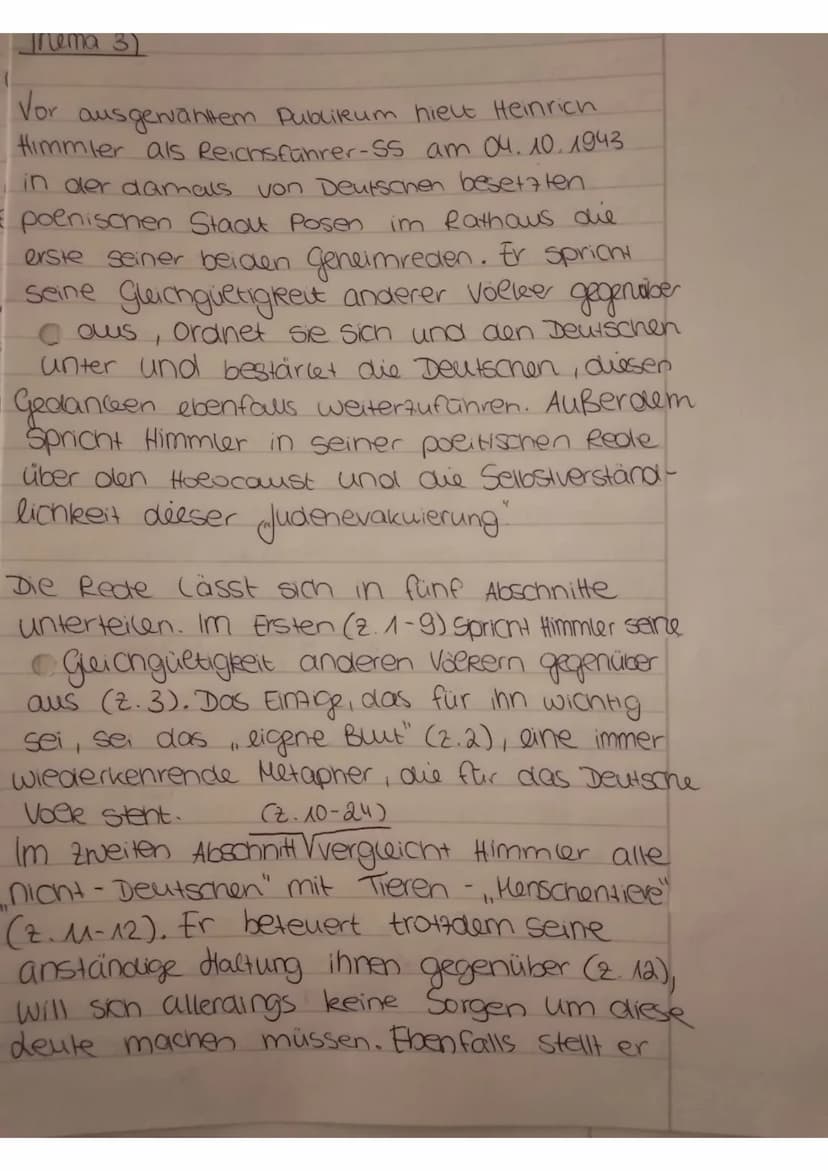 Thema 3)
Vor ausgewähltem Publikum hielt Heinrich
Himmler als Reichsführer-SS am 04.10.1943
in der damals von Deutschen besetzten
polnischen Stadt Posen im Rathaus die
erste seiner beiden Geheimreden. Er spricht
seine Gleichgültigkeit anderer Völker gegenüber
aus, ordnet sie sich und den Deutschen
unter und bestärket die Deutschen, diesen
Gedanken ebenfalls weiterzuführen. Außerdem
spricht Himmler in seiner politischen Rede
über den Holocaust und die Selbstverständ-
lichkeit dieser „Judenevakuierung"
Die Rede lässt sich in fünf Abschnitte
unterteilen. Im Ersten (z. 1-9) spricht Himmler seine
Gleichgültigkeit anderen Völkern gegenüber
aus (z.3). Das Einzige, das für ihn wichtig
sei, sei das „eigene Blut" (z.2), eine immer
wiederkehrende Metapher, die für das Deutsche
Volk steht. (z. 10-24)
Im zweiten Abschnitt vergleicht Himmler alle
„nicht-Deutschen" mit Tieren - „Menschentiere"
(z. 11-12). Er beteuert trotzdem seine
anständige Haltung ihnen gegenüber (z. 12),
will sich allerdings keine Sorgen um diese
Leute machen müssen. Ebenfalls stellt er